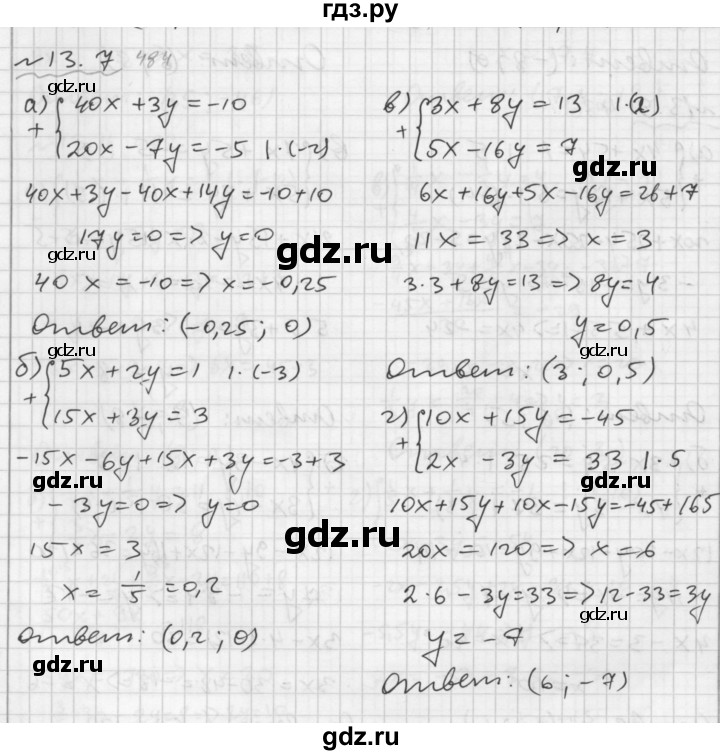 гдз.ру
№13.7 487
а) { 40x + 3y = -10
+ { 20x - 7y = -5 | · (-2)
40x + 3y - 40x + 14y = -10 + 10
17y = 0 => y = 0
40x = -10 => x = -0,25
Ответ: (-0,25; 0)
б) { 5x + 2y = 1 | · (-3)
+ { 15x + 3y = 3
-15x - 6y + 15x + 3y = -3 + 3
-3y = 0 => y = 0
15x = 3
x = 1/5 = 0,2
Ответ: (0,2; 0)
в) { 3x + 8y = 13 | · (2)
+ { 5x - 16y = 7
6x + 16y + 5x - 16y = 26 + 7
11x = 33 => x = 3
3·3 + 8y = 13 => 8y = 4
y = 0,5
Ответ: (3; 0,5)
г) { 10x + 15y = -45
+ { 2x - 3y = 33 | · 5
10x + 15y + 10x - 15y = -45 + 165
20x = 120 => x = 6
2·6 - 3y = 33 => 12 - 33 = 3y
y = -7
Ответ: (6; -7)
gdz.ru
gdz.ru
gdz.ru
gdz.ru
gdz.ru
gdz.ru
gdz.ru
gdz.ru
gdz.ru
gdz.ru